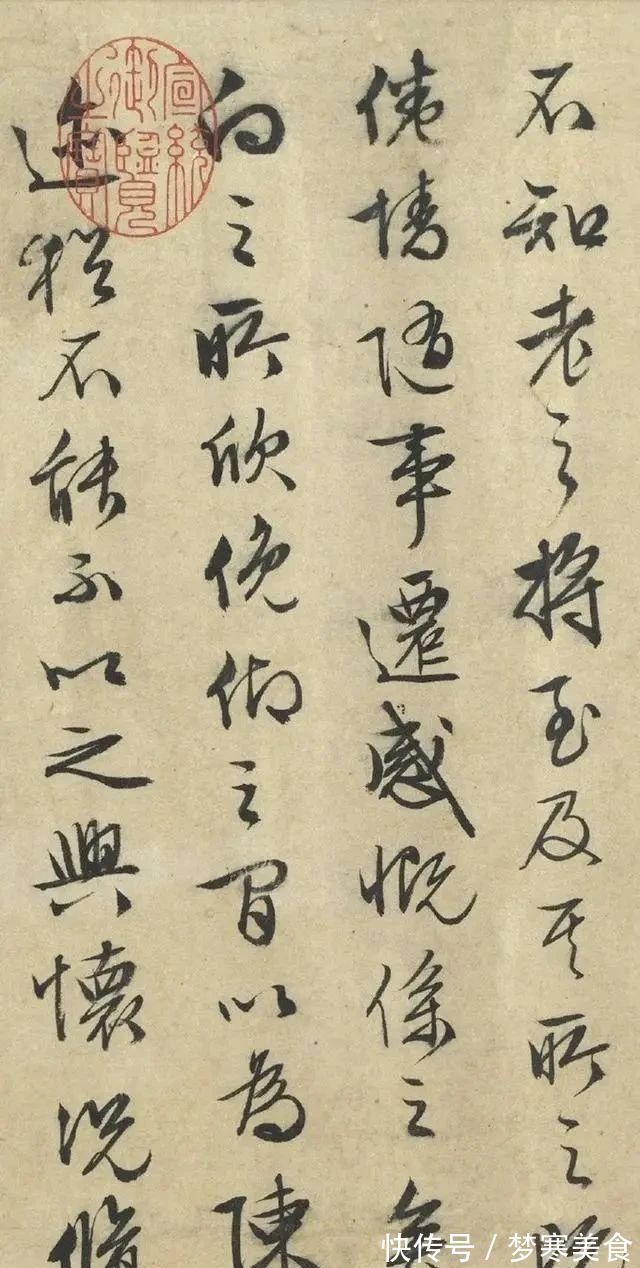 不知老之將至及其所之既
倦情隨事遷感慨係之矣
向之所欣俛仰之間以為陳
迹猶不能不以之興懷況脩
宣統御覽之寶
快传号/梦寒美食